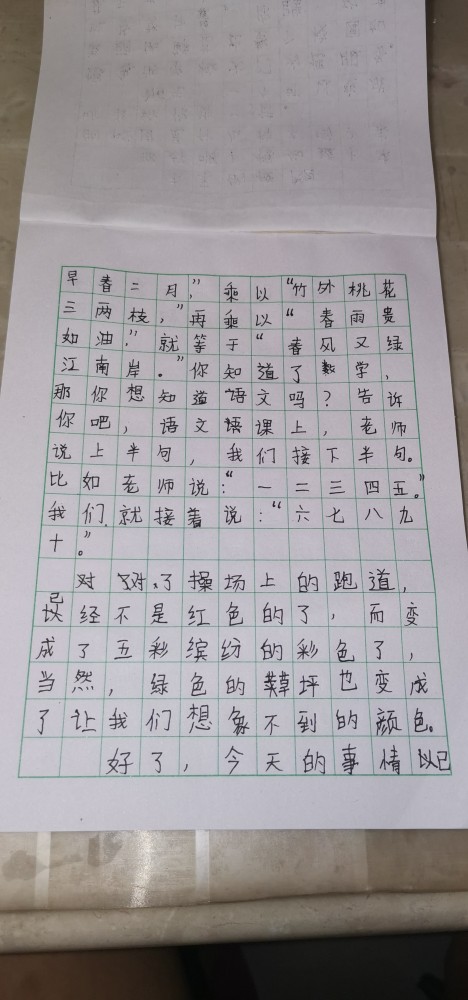 早春二月”，乘以“竹外桃花
三两枝，”再乘以“春雨贵
如油”，就等于“春风又绿
江南岸。”你知道了数学，
那你想知道语文吗？告诉
你吧，语文语课上，老师
说上半句，我们接下半句。
比如老师说：“一二三四五。”
我们就接着说：“六七八九
十。”
对对了操场上的跑道，
已经不是红色的了，而变
成了五彩缤纷的彩色了，
当然，绿色的草坪也变成
了让我们想象不到的颜色。
好了，今天的事情以已